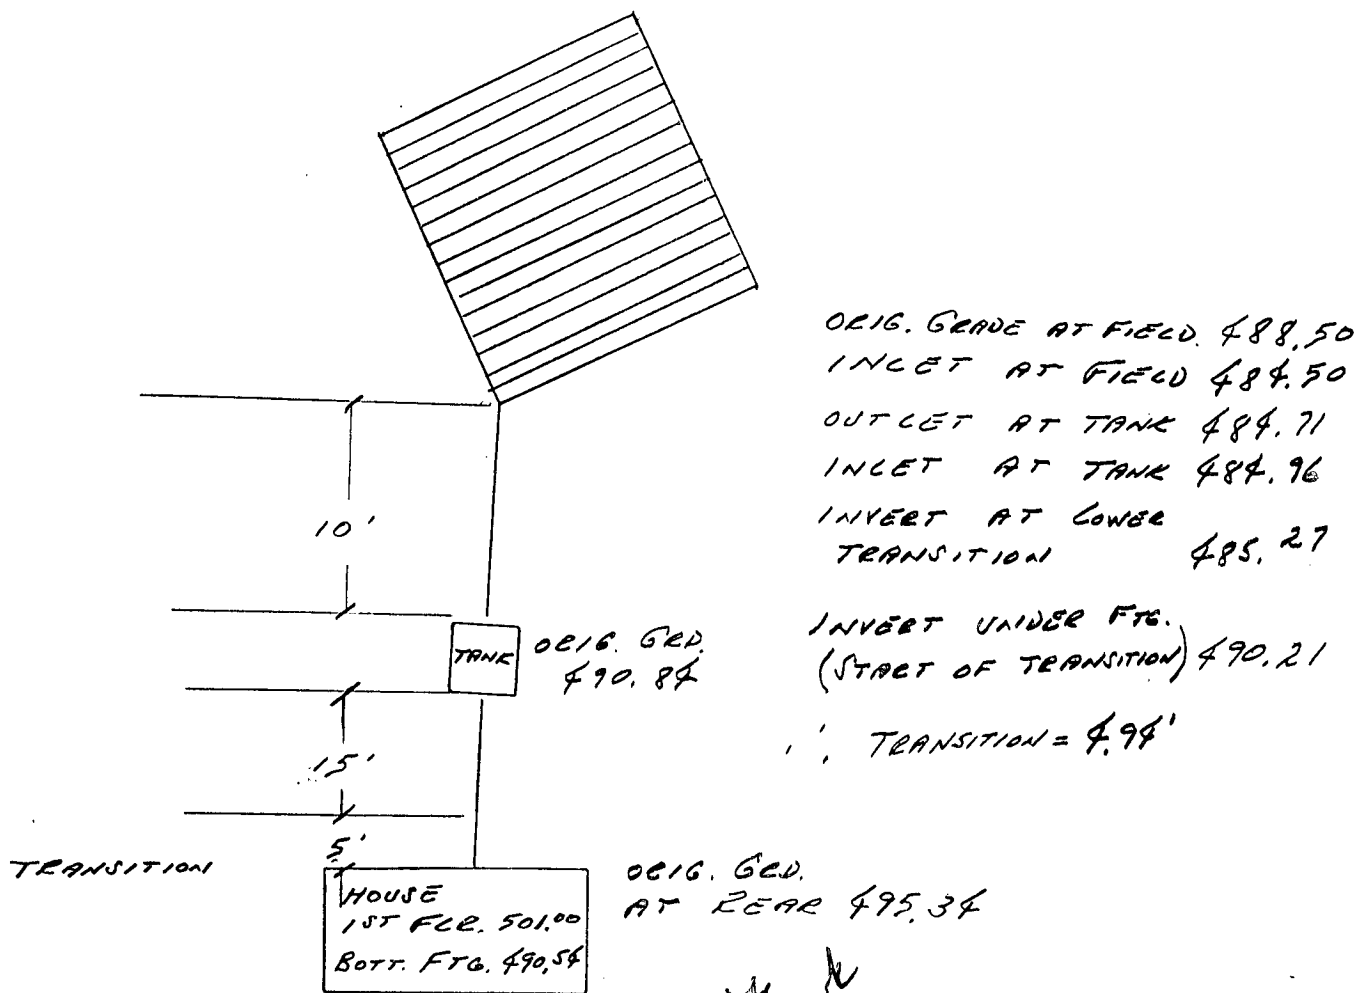 ORIG. GRADE AT FIELD. 488.50
INLET AT FIELD 484.50
OUTLET AT TANK 484.71
INLET AT TANK 484.96
INVERT AT LOWER
TRANSITION 485.27
INVERT UNDER FTG.
(START OF TRANSITION) 490.21
∴ TRANSITION = 4.94'
10'
TANK
ORIG. GRD.
490.84
15'
5'
TRANSITION
HOUSE
1ST FLR. 501.00
BOTT. FTG. 490.54
ORIG. GRD.
AT REAR 495.34